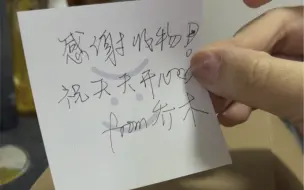 感谢收物！
祝天天开心
from 乔木